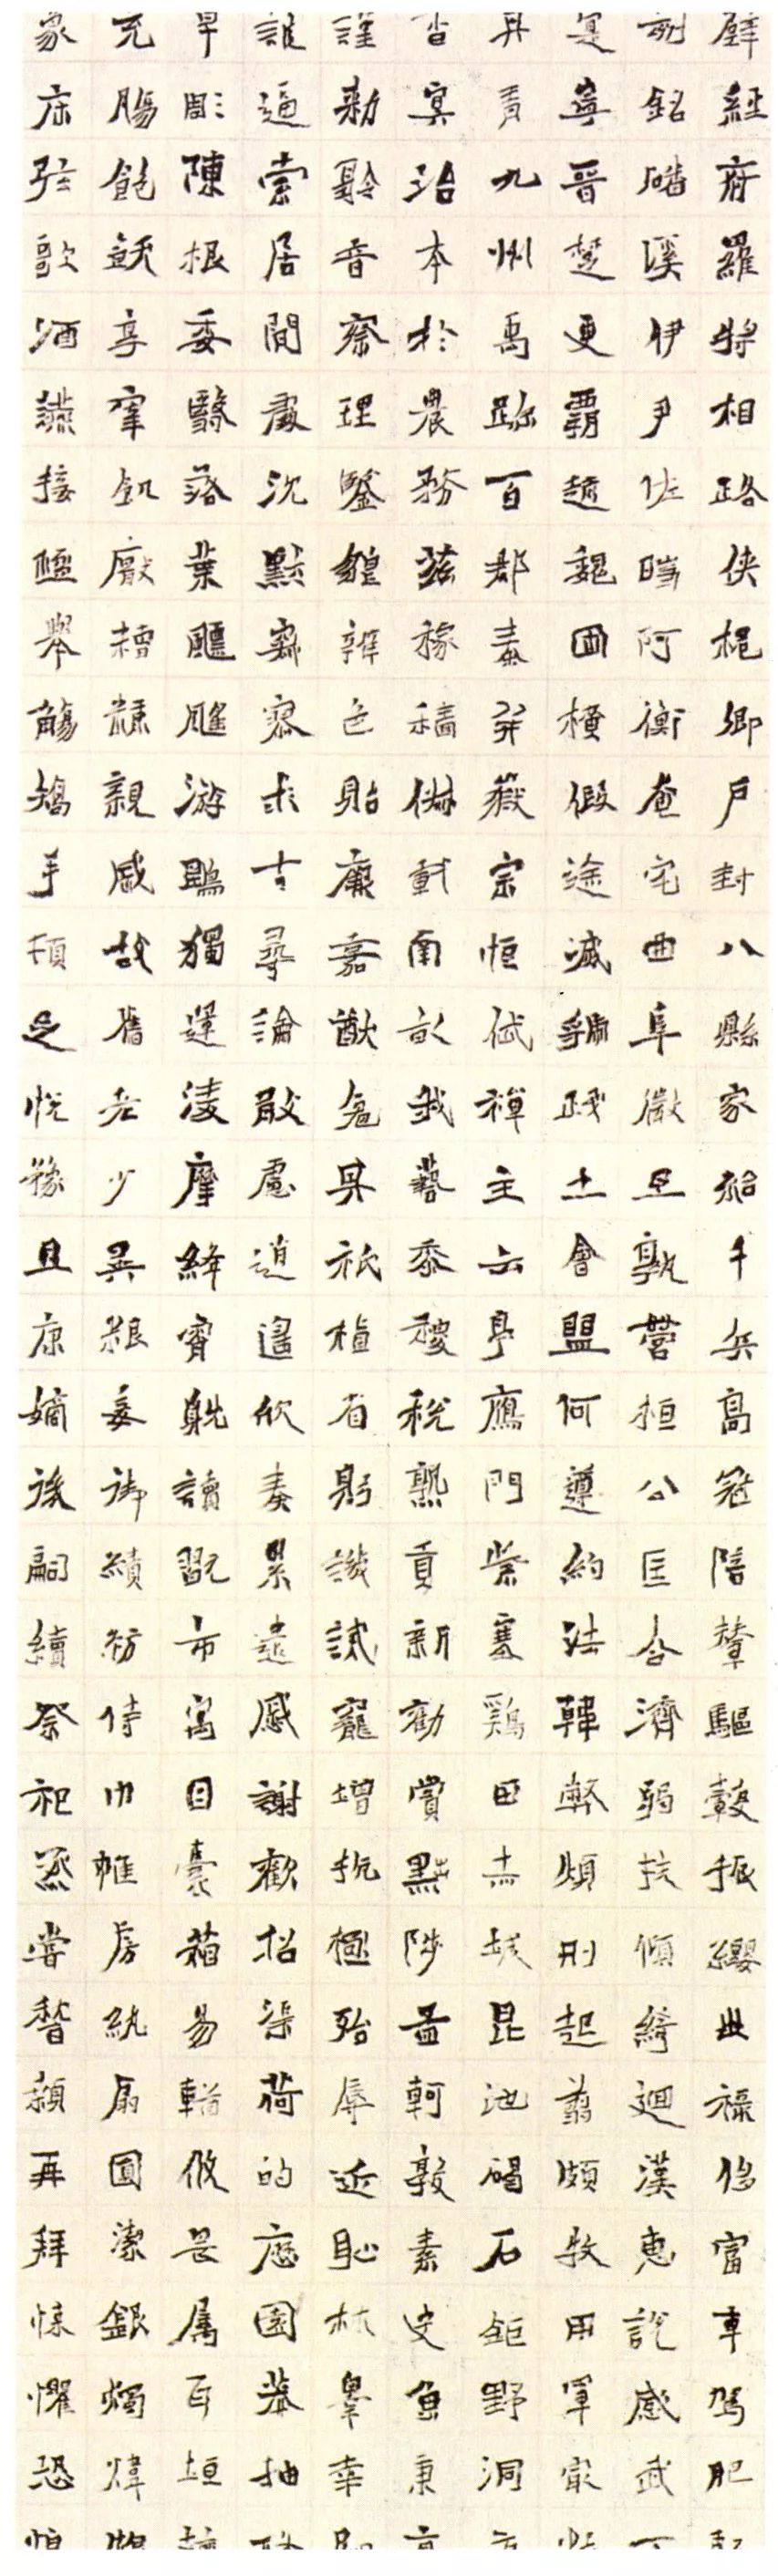 壁經府羅將相路俠槐卿戶封八縣家給千兵高冠陪輦驅轂振纓世祿侈富車駕肥輕
刻銘磻溪伊尹佐時阿衡奄宅曲阜微旦孰營桓公匡合濟弱扶傾綺迴漢惠說感武丁
寔寧晉楚更霸趙魏困橫假途滅虢踐土會盟何遵約法韓弊煩刑起翦頗牧用軍最精
丹青九州禹跡百郡秦并嶽宗恒岱禪主云亭鴈門紫塞雞田赤城昆池碣石鉅野洞庭
杳冥治本於農務茲稼穡俶載南畝我藝黍稷稅熟貢新勸賞黜陟孟軻敦素史魚秉直
謹勑聆音察理鑒貌辨色貽厥嘉猷勉其祗植省躬譏誡寵增抗極殆辱近恥林皋幸即
誰逼索居閒處沉默寂寥求古尋論散慮逍遙欣奏累遣慼謝歡招渠荷的歷園莽抽條
早彫陳根委翳落葉飄颻游鵾獨運凌摩絳霄耽讀翫市寓目囊箱易輶攸畏屬耳垣牆
充腸飽飫享宰飢厭糟糠親戚故舊老少異糧妾御績紡侍巾帷房紈扇圓潔銀燭煒煌
象床弦歌酒讌接杯舉觴矯手頓足悅豫且康嫡後嗣續祭祀蒸嘗稽顙再拜悚懼恐惶